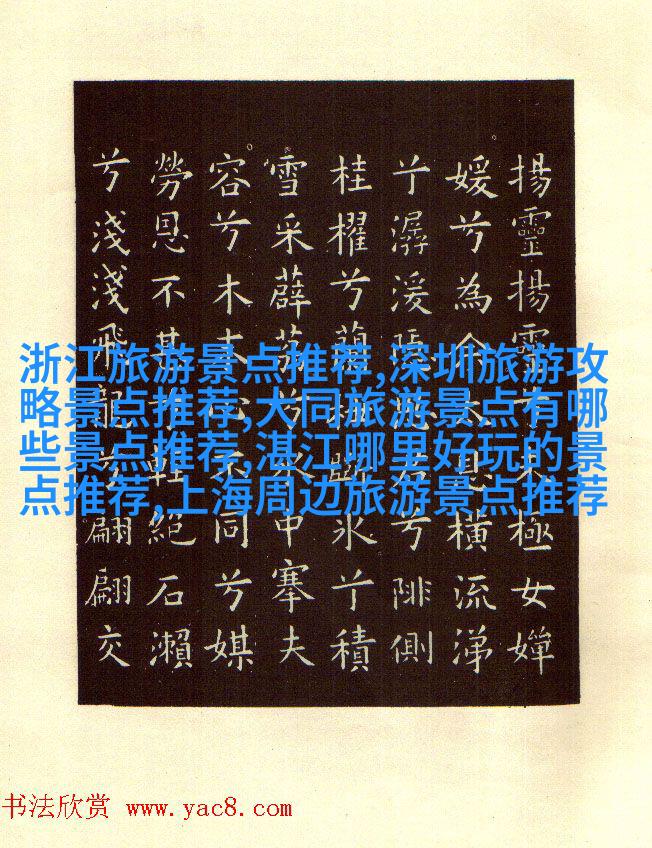 揚靈揚靈兮未極女嬋
媛兮為余太息橫流涕
兮潺湲隱思君兮陫側
桂櫂兮蘭枻斲氷兮積
雪采薜荔兮水中搴夫
容兮木末心不同兮媒
勞恩不甚兮輕絕石瀨
兮淺淺飛龍兮翩翩交
浙江旅游景点推荐,深圳旅游攻
略景点推荐,大同旅游景点有哪
些景点推荐,湛江哪里好玩的景
点推荐,上海周边旅游景点推荐
书法欣赏 www.yac8.com